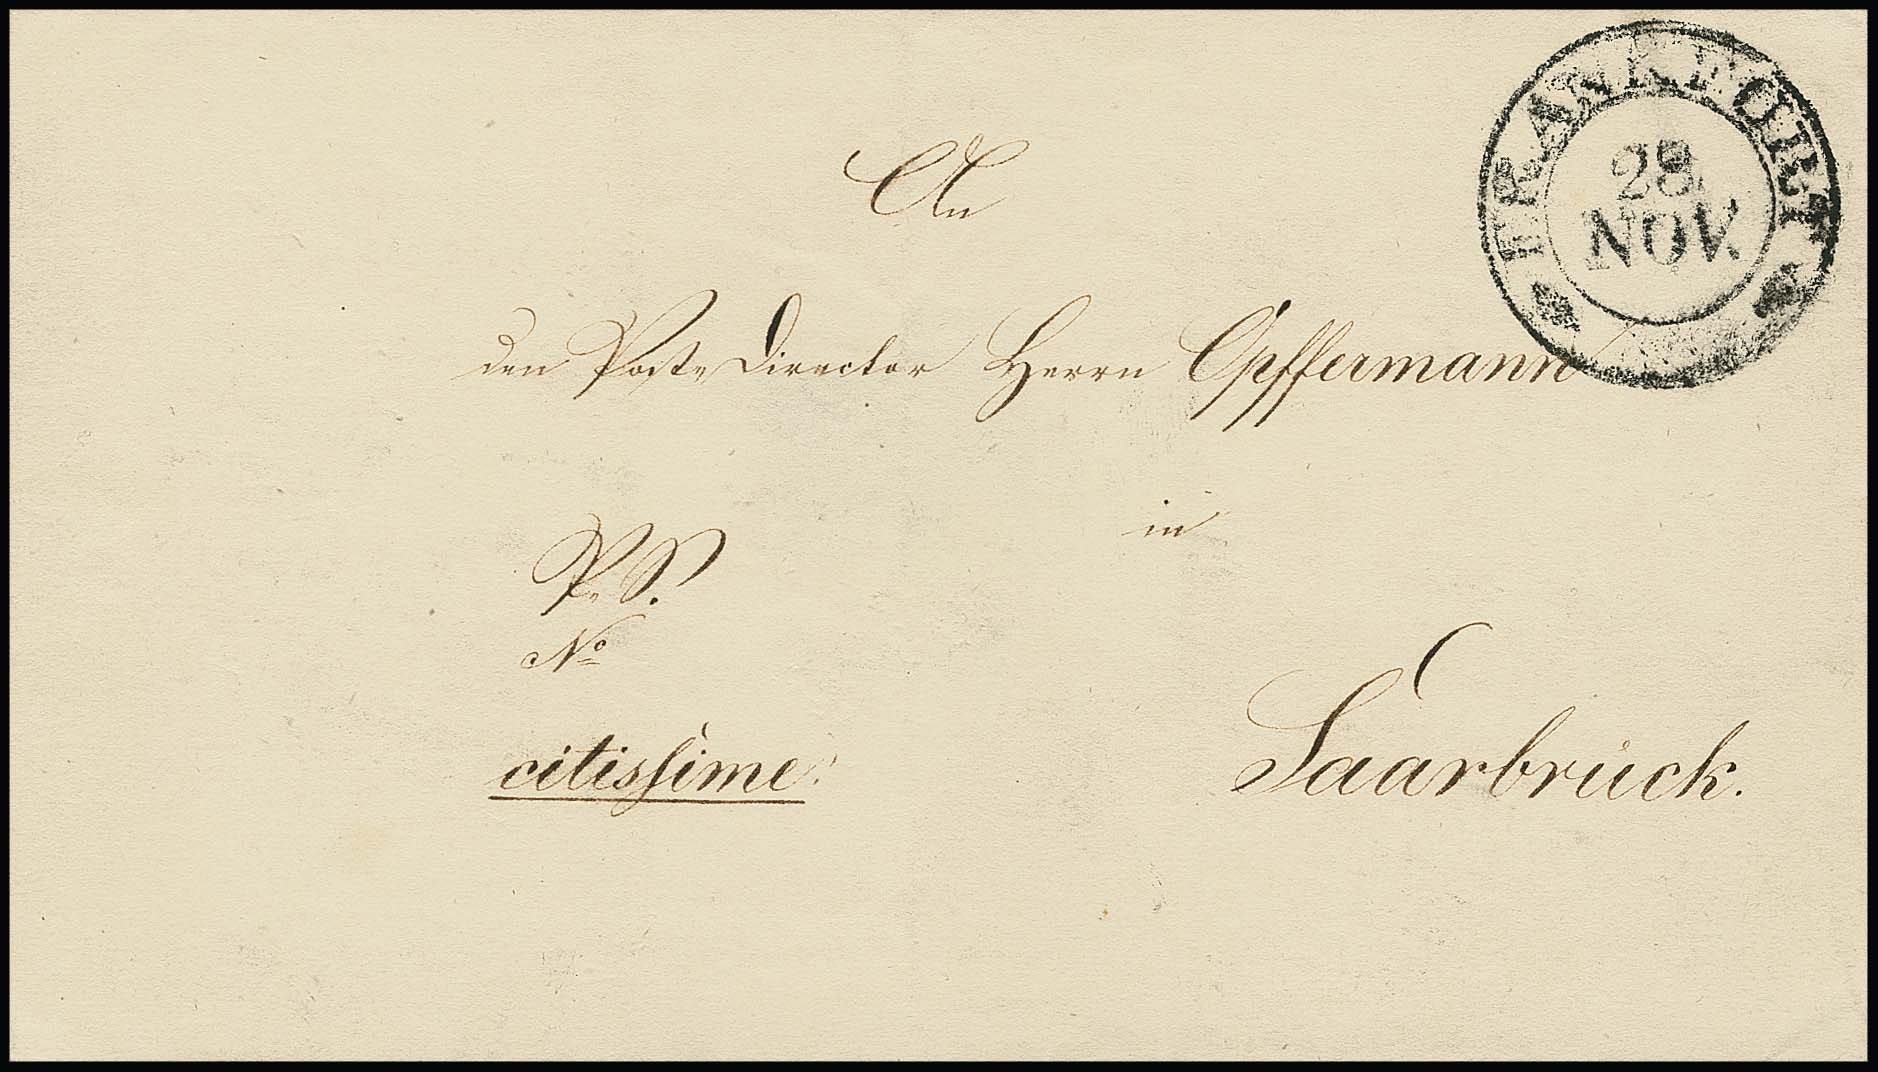 FRANKFURT
28
NOV.
An
den Post-Director Herrn Opffermann
in
P. S.
No
citissime!
Saarbrück.